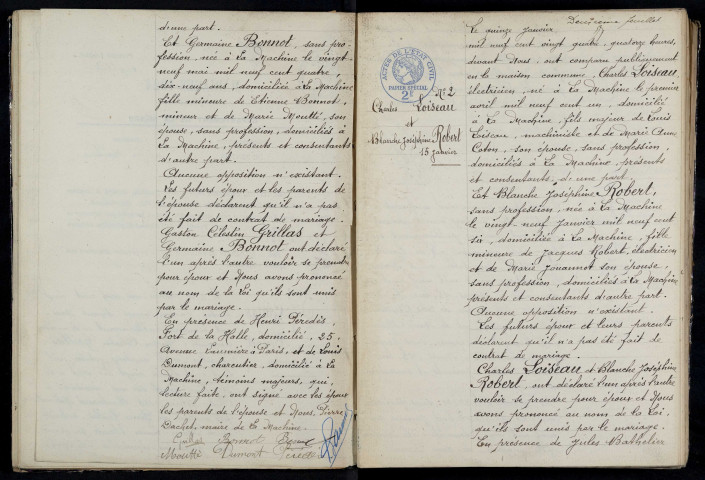 d'une part.
Et Germaine Bonnot, sans pro-
fession, née à La Machine le vingt-
neuf mai mil neuf cent quatre,
dix-neuf ans, domiciliée à La Machine
fille mineure de Etienne Bonnot,
mineur et de Marie Moutté, son
épouse, sans profession, domiciliés à
La Machine, présents et consentants
d'autre part.
Aucune opposition n'existant.
Les futurs époux et les parents de
l'épouse déclarent qu'il n'a pas
été fait de contrat de mariage.
Gaston Célestin Grillas et
Germaine Bonnot ont déclaré
l'un après l'autre vouloir se prendre
pour époux et Nous avons prononcé
au nom de la Loi qu'ils sont unis
par le mariage.
En présence de Henri Pérédès,
Fort de la Halle, domicilié, 25,
Avenue à Paris, et de Louis
Dumont, charcutier, domicilié à La
Machine, témoins majeurs, qui,
lecture faite, ont signé avec les époux
les parents de l'épouse et Nous, Pierre
maire de La Machine.
Bonnot
Moutté Dumont
Deuxième feuillet
ACTES DE L'ETAT CIVIL
PAPIER SPÉCIAL
2F
N°2
Charles Loiseau
et
Blanche Joséphine Robert
15 Janvier
Le quinze Janvier
mil neuf cent vingt quatre, quatorze heures,
devant Nous, ont comparu publiquement
en la maison commune, Charles Loiseau,
électricien, né à La Machine le premier
avril mil neuf cent un, domicilié
à La Machine, fils majeur de Louis
Loiseau, machiniste et de Marie
Coton, son épouse, sans profession,
domiciliés à La Machine, présents
et consentants, d'une part.
Et Blanche Joséphine Robert,
sans profession, née à La Machine
le vingt-neuf Janvier mil neuf cent
six, domiciliée à La Machine, fille
mineure de Jacques Robert, électricien
et de Marie Jouannot son épouse,
sans profession, domiciliés à La Machine
présents et consentants d'autre part.
Aucune opposition n'existant.
Les futurs époux et leurs parents
déclarent qu'il n'a pas été fait de
contrat de mariage.
Charles Loiseau et Blanche Joséphine
Robert, ont déclaré l'un après l'autre
vouloir se prendre pour époux et Nous
avons prononcé au nom de la Loi
qu'ils sont unis par le mariage.
En présence de Jules